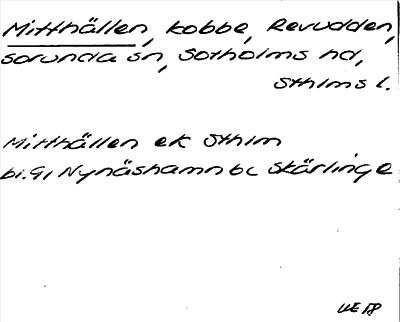 Mitthällen, kobbe, Revudden,
Sorunda sn, Sotholms hd,
Sthlms l.
Mitthällen ek Sthlm
bl. 91 Nynäshamn bc Skärlinge